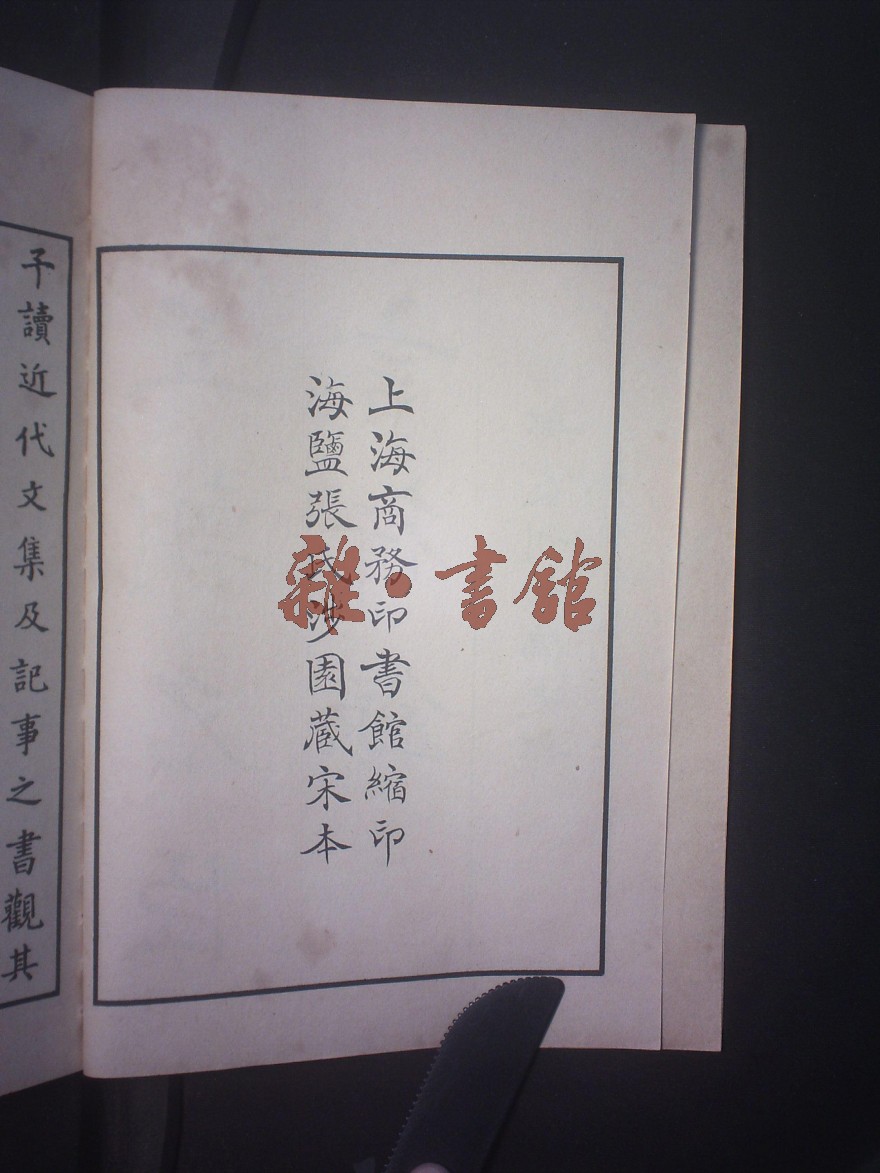 上海商務印書館縮印
海鹽張氏涉園蔵宋本
子讀近代文集及記事之書觀其
雜·書館